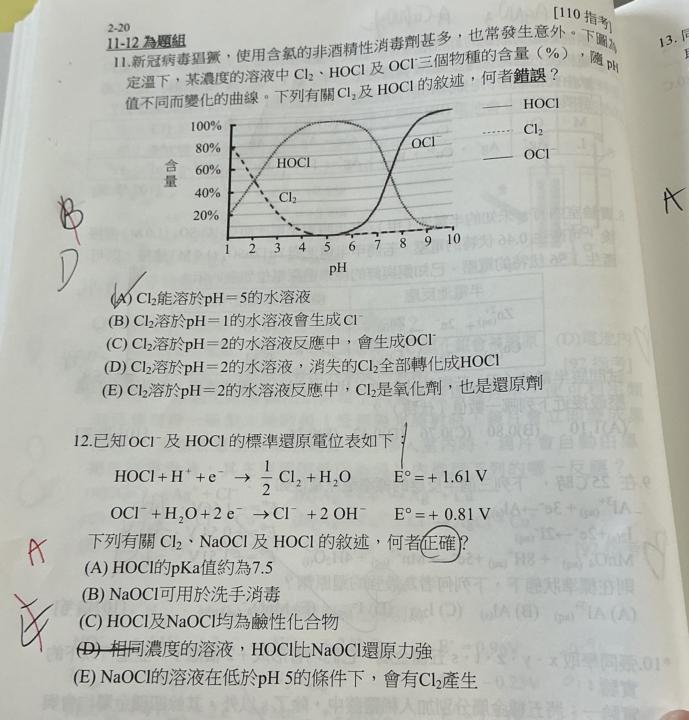 2-20
[110 指考]
13. 同
11-12 為題組
11.新冠病毒猖獗，使用含氯的非酒精性消毒劑甚多，也常發生意外。下圖為
定溫下，某濃度的溶液中 Cl₂、HOCl 及 OCl⁻三個物種的含量（%），隨 pH
值不同而變化的曲線。下列有關 Cl₂ 及 HOCl 的敘述，何者錯誤？
HOCl
Cl₂
OCl⁻
100%
80%
60%
40%
20%
含量
HOCl
Cl₂
OCl⁻
1 2 3 4 5 6 7 8 9 10
pH
A
B
D
(A) Cl₂能溶於pH＝5的水溶液
(B) Cl₂溶於pH＝1的水溶液會生成 Cl⁻
(C) Cl₂溶於pH＝2的水溶液反應中，會生成OCl⁻
(D) Cl₂溶於pH＝2的水溶液，消失的Cl₂全部轉化成HOCl
(E) Cl₂溶於pH＝2的水溶液反應中，Cl₂是氧化劑，也是還原劑
12.已知 OCl⁻ 及 HOCl 的標準還原電位表如下：
HOCl + H⁺ + e⁻ → 1/2 Cl₂ + H₂O E° = + 1.61 V
OCl⁻ + H₂O + 2 e⁻ → Cl⁻ + 2 OH⁻ E° = + 0.81 V
下列有關 Cl₂、NaOCl 及 HOCl 的敘述，何者正確？
A
E
(A) HOCl的pKa值約為7.5
(B) NaOCl可用於洗手消毒
(C) HOCl及NaOCl均為鹼性化合物
(D) 相同濃度的溶液，HOCl比NaOCl還原力強
(E) NaOCl的溶液在低於pH 5的條件下，會有Cl₂產生